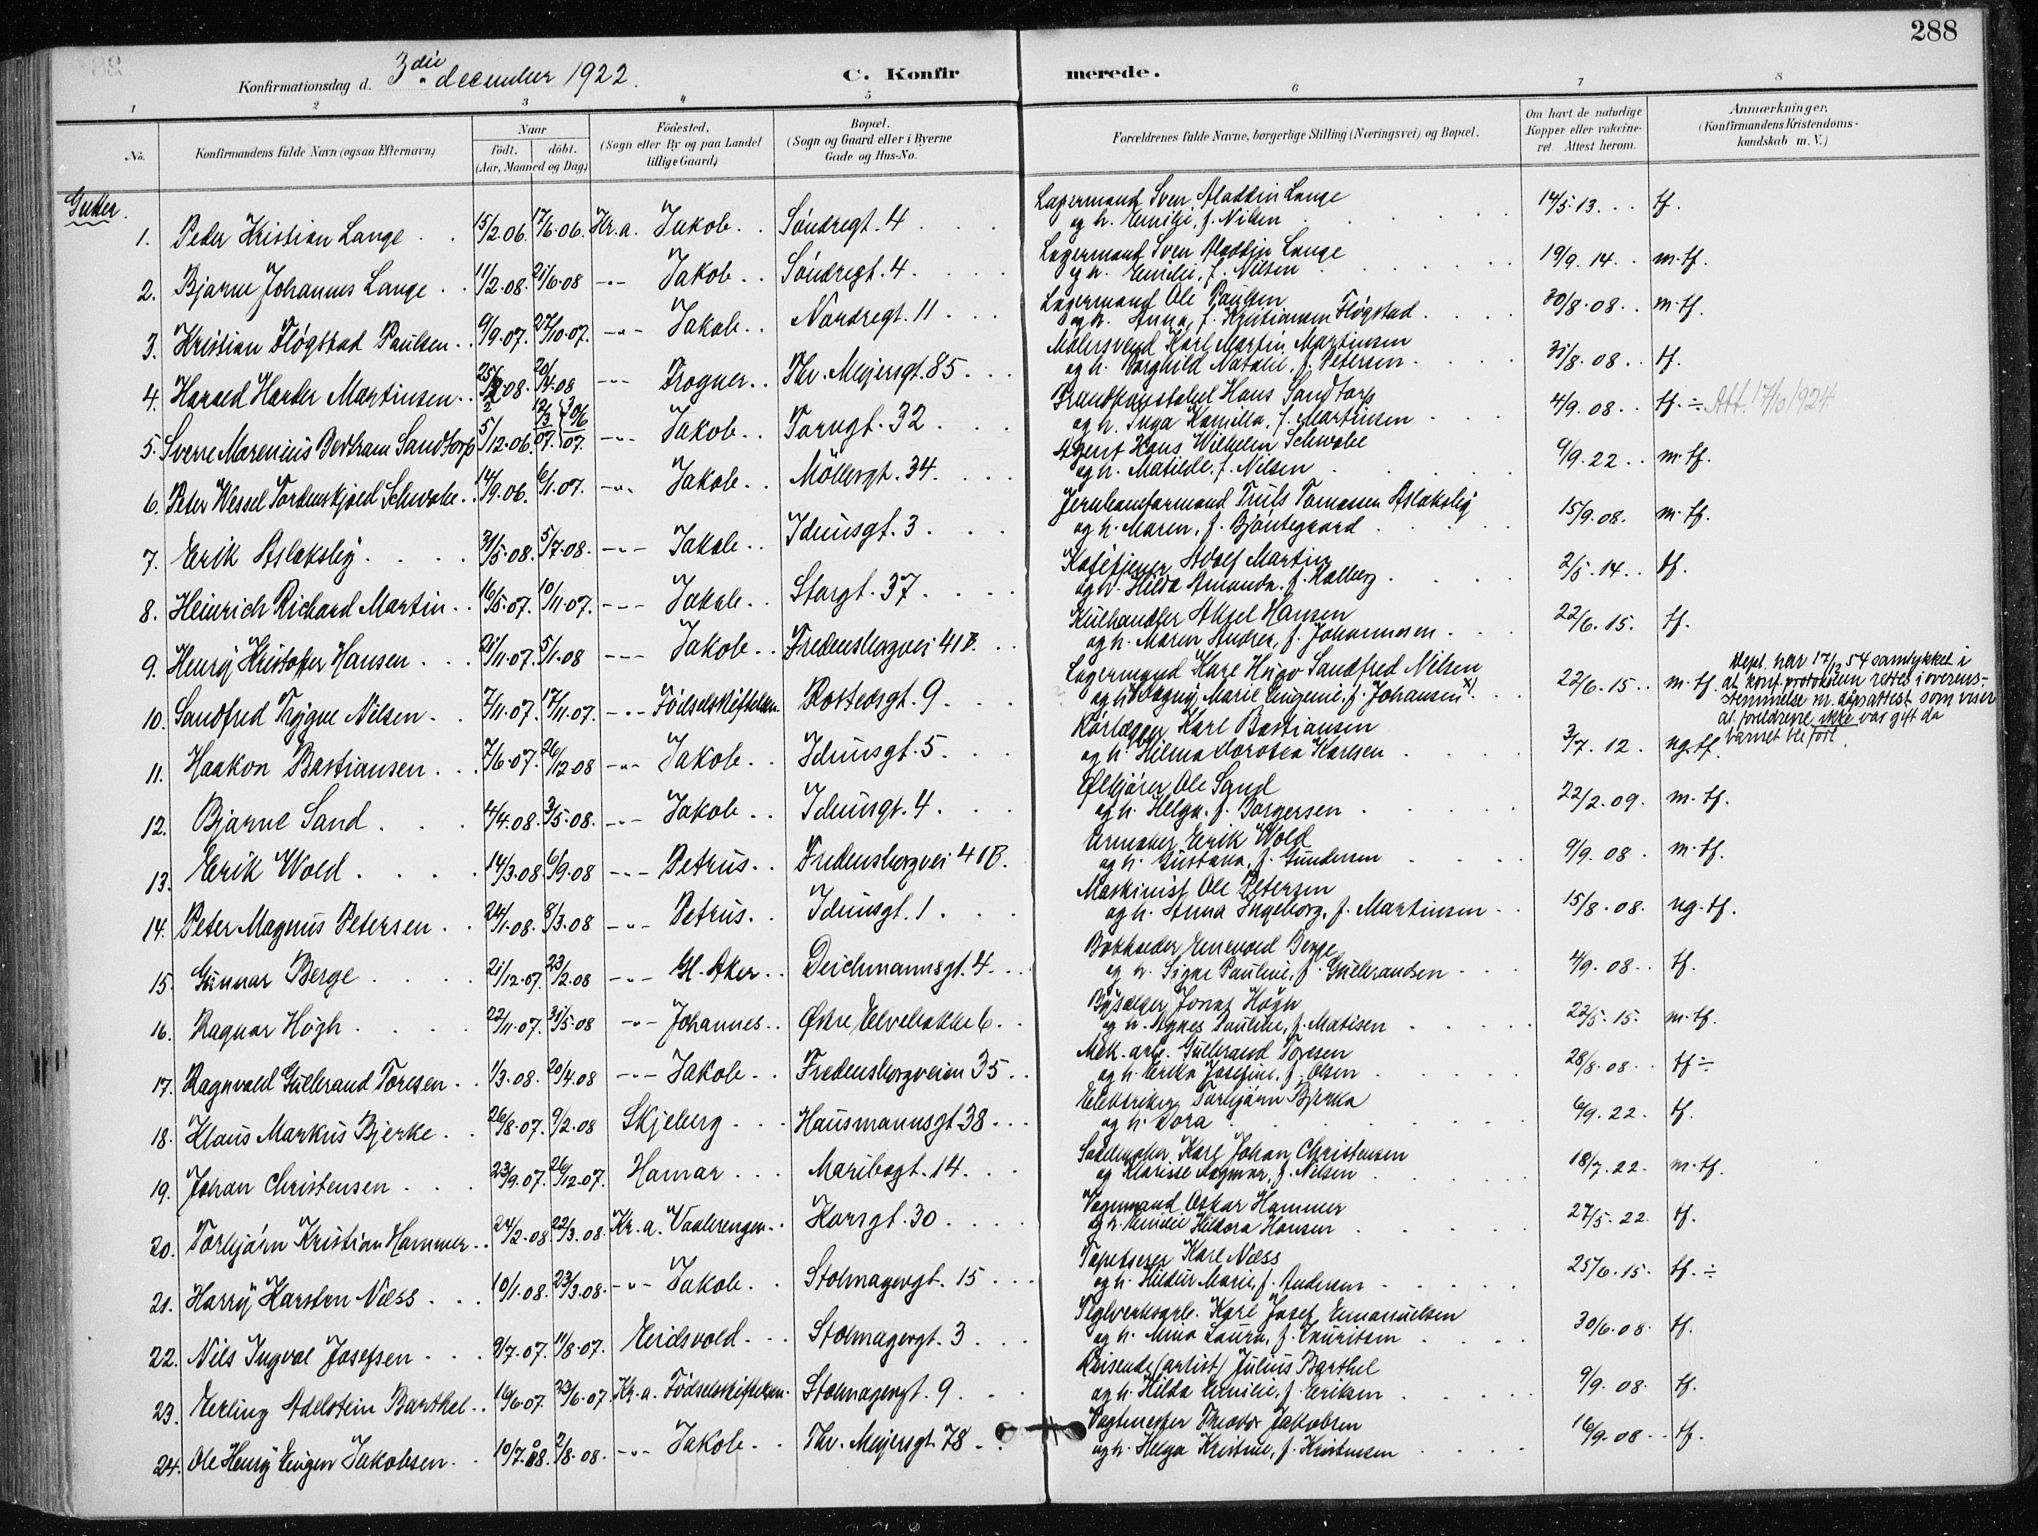 288
Konfirmationsdag d. 3die december 1922.
C. Konfirmerede.
1 2 3 4 5 6 7 8
No. Konfirmandens fulde Navn (ogsaa Efternavn) Naar født. døbt. (Aar, Maaned og Dag) Fødested. (Sogn eller By og paa Landet tillige Gaard) Bopæl. (Sogn og Gaard eller i Byerne Gade og Hus-No. Forældrenes fulde Navne, borgerlige Stilling (Næringsvei) og Bopæl. Om havt de naturlige Kopper eller vakcineret. Attest herom. Anmærkninger. (Konfirmandens Kristendomskundskab m. V.)
Gutter.
1. Peder Kristian Lange 15/2.06. 17/6.06. Kr.a. Jakob. Søndregt. 4 Lagermand Sven Aladdin Lange 14/5.13. tf.
og h. Emilie, f. Nilsen
2. Bjarne Johannes Lange 11/2.08. 21/6.08 -"- Jakob. Søndregt. 4 Lagermand Sven Aladdin Lange 19/9.14. m.tf.
og h. Emilie, f. Nilsen
3. Kristian Fløgstad Paulsen 9/9.07. 27/10.07. -"- Jakob. Nordregt. 11 Lagermand Ole Paulsen 30/8.08. m.tf.
og h. Anna, f. Kristiansen Fløgstad
4. Harald Harder Martinsen 20/4.08 -"- Frogner. Thv. Meyersgt. 85 Malersvend Karl Martin Martinsen 31/8.08. tf.
og h. Borghild Natalie, f. Petersen
5. Sverre Marenius Bertram Sandtorp 5/12.06. 12/3 07. {30/6 07. -"- Jakob. Torvgt. 32 Brandkonstabel Hans Sandtorp 4/9.08. tf. ÷ Att. 17/10 1924.
og h. Inga Kamilla, f. Martinsen
6. Peter Wessel Tordenskjold Schwabe 14/9.06. 6/1.07. -"- Jakob. Møllergt. 34. Agent Hans Wilhelm Schwabe 6/9.22. m.tf.
og h. Matilde, f. Nilsen
7. Erik Aslaksby 31/5.08. 5/7.08. -"- Jakob. Idunsgt. 3 Jernbaneformand Truls Tomassen Aslaksby 15/9.08. m.tf.
og h. Maren, f. Bjöntegaard
8. Heinrich Richard Martin 16/5.07. 10/11.07. -"- Jakob. Storgt. 37 Kafétjener Adolf Martin 2/5.14. tf.
og h. Hilda Amanda, f. Kalberg
9. Henry Kristoffer Hansen 21/11.07. 5/1.08 -"- Jakob. Fredensborgvei 41B. Kulhandler Aksel Hansen 22/6.15. tf.
og h. Maren Andrea, f. Johannesen
10. Sandfred Trygve Nilsen 7/11.07. 17/11.07. -"- Fødselsstiftelsen. Rostedsgt. 9 Lagermand Karl Hugo Sandfred Nilsen 22/6.15. m.tf.
og h. Dagny Marie Eugenie, f. Johansen x).
Dept. har 17/12 54 samtykket i
at konf.protokollen rettes i overens-
stemmelse m. dåpsattest som viser
at foreldrene ikke var gift da
barnet ble født.
11. Haakon Bastiansen 7/6.07. 26/12.08 -"- Jakob. Idunsgt. 5 Rørlægger Karl Bastiansen 3/7.12. ng.tf.
og h. Hilma Dorotea Karlsen
12. Bjarne Sand 4/4.08. 3/5.08. -"- Jakob. Idunsgt. 4 Ølkjører Ole Sand 22/2.09. m.tf.
og h. Helga, f. Borgersen
13. Erik Wold 14/3.08. 6/9.08 -"- Petrus. Fredensborgvei 41B. Urmaker Erik Wold 9/9.08. m.tf.
og h. Gustava, f. Gundersen
14. Peter Magnus Petersen 24/1.08. 8/3.08 -"- Petrus. Idunsgt. 1 Maskinist Ole Petersen 15/8.08. ng.tf.
og h. Anna Ingeborg, f. Martinsen
15. Gunnar Berge 21/12.07. 23/2.08 -"- Gl. Aker. Deichmannsgt. 4. Bokholder Enevold Berge 4/9.08. tf.
og h. Signe Pauline, f. Gulbrandsen
16. Ragnar Høgh 22/11.07. 31/5.08 -"- Johannes. Østre Elvebakke 6. Bysælger Jonas Høgh 22/5.15. m.tf.
og h. Agnes Pauline, f. Matisen
17. Ragnvald Gulbrand Toresen 1/3.08. 20/4.08 -"- Jakob. Fredensborgveien 35 Mek. arb. Gulbrand Toresen 28/8.08. tf ÷
og h. Erika Josefine, f. Olsen
18. Klaus Markus Bjerke 26/8.07. 9/2.08 Skjeberg Hausmannsgt 38 Elektriker Torbjørn Bjerka 6/9.22. tf.
og h. Dora
19. Johan Christensen 23/9.07. 26/12.07. Hamar Maribogt. 14. Sadelmaker Karl Johan Christensen 18/7.22. m.tf.
og Klarisse Dagmar, f. Nilsen
20. Torbjørn Kristian Hammer 24/2.08. 22/3.08. Kr.a. Vaalerengen. Korsgt. 30 Vognmand Oskar Hammer 27/5.22. tf.
og h. Emilie Hildora Hansen
21. Harry Karsten Næss 10/1.08. 23/3.08. -"- Jakob. Stolmagergt. 15 Tapetserer Karl Næss 25/6.15. tf. ÷
og h. Hildur Marie, f. Andersen
22. Nils Ingval Josefsen 9/7.07. 11/8.07. Eidsvold Stolmagergt. 3 Teglverksarb. Karl Josef Emanuelsen 30/6.08. tf.
og h. Mina Laura, f. Lauritsen
23. Erling Adelstein Barthel 16/6.07. 23/6.07. Kr.a. Fødselsstiftelsen. Stolmagergt. 9 Reisende (artist) Julius Barthel 9/9.08. tf.
og h. Hilda Emilie, f. Eriksen
24. Ole Henry Eugen Jakobsen 10/7.08. 2/8.08. -"- Jakob. Thv. Meyersgt. 78 Vagtmester Theodor Jakobsen 16/9.08 tf.
og h. Helga Kristine, f. Kristensen